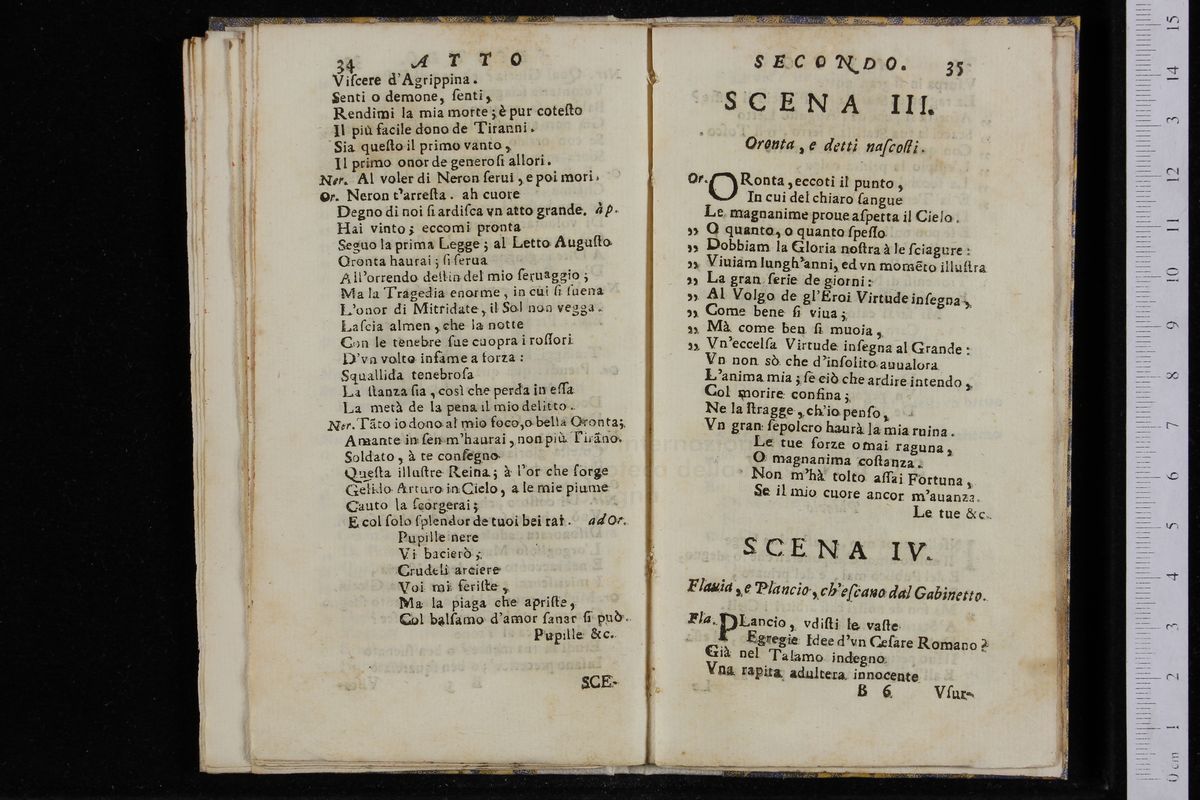 34 ATTO
Viſcere d'Agrippina.
Senti o demone, ſenti,
Rendimi la mia morte; è pur coteſto
Il più facile dono de Tiranni.
Sia queſto il primo vanto,
Il primo onor de generoſi allori.
Ner. Al voler di Neron ſerui, e poi mori.
Or. Neron t'arreſta. ah cuore
Degno di noi ſi ardiſca vn atto grande. àp.
Hai vinto; eccomi pronta
Seguo la prima Legge; al Letto Auguſto
Oronta haurai; ſi ſerua
All'orrendo deſtin del mio ſeruaggio;
Ma la Tragedia enorme, in cui ſi ſuena
L'onor di Mitridate, il Sol non vegga.
Laſcia almen, che la notte
Con le tenebre ſue cuopra i roſſori
D'vn volto infame a forza:
Squallida tenebroſa
La ſtanza ſia, così che perda in eſſa
La metà de la pena il mio delitto.
Ner. Tãto io dono al mio foco, o bella Oronta;
Amante in ſen m'haurai, non più Tirãno.
Soldato, à te conſegno
Queſta illuſtre Reina; à l'or che ſorge
Gelido Arturo in Cielo, a le mie piume
Cauto la ſcorgerai;
E col ſolo ſplendor de tuoi bei rai. ad Or.
Pupille nere
Vi bacierò;
Crudeli arciere
Voi mi feriſte,
Ma la piaga che apriſte,
Col balſamo d'amor ſanar ſi può.
Pupille &c.
SCE-
SECONDO. 35
SCENA III.
Oronta, e detti naſcoſti.
Or. ORonta, eccoti il punto,
In cui del chiaro ſangue
Le magnanime proue aſpetta il Cielo.
„ O quanto, o quanto ſpeſſo
„ Dobbiam la Gloria noſtra à le ſciagure:
„ Viuiam lungh'anni, ed vn momẽto illuſtra
„ La gran ſerie de giorni:
„ Al Volgo de gl'Eroi Virtude inſegna,
„ Come bene ſi viua;
„ Mà come ben ſi muoia,
„ Vn'eccelſa Virtude inſegna al Grande:
Vn non sò che d'inſolito auualora
L'anima mia; ſe ciò che ardire intendo,
Col morire confina;
Ne la ſtragge, ch'io penſo,
Vn gran ſepolcro haurà la mia ruina.
Le tue forze omai raguna,
O magnanima coſtanza.
Non m'hà tolto aſſai Fortuna,
Se il mio cuore ancor m'auanza.
Le tue &c.
SCENA IV.
Flauia, e Plancio, ch'eſcano dal Gabinetto.
Fla. PLancio, vdiſti le vaſte
Egregie Idee d'vn Ceſare Romano?
Già nel Talamo indegno
Vna rapita adultera innocente
B 6 Vſur-